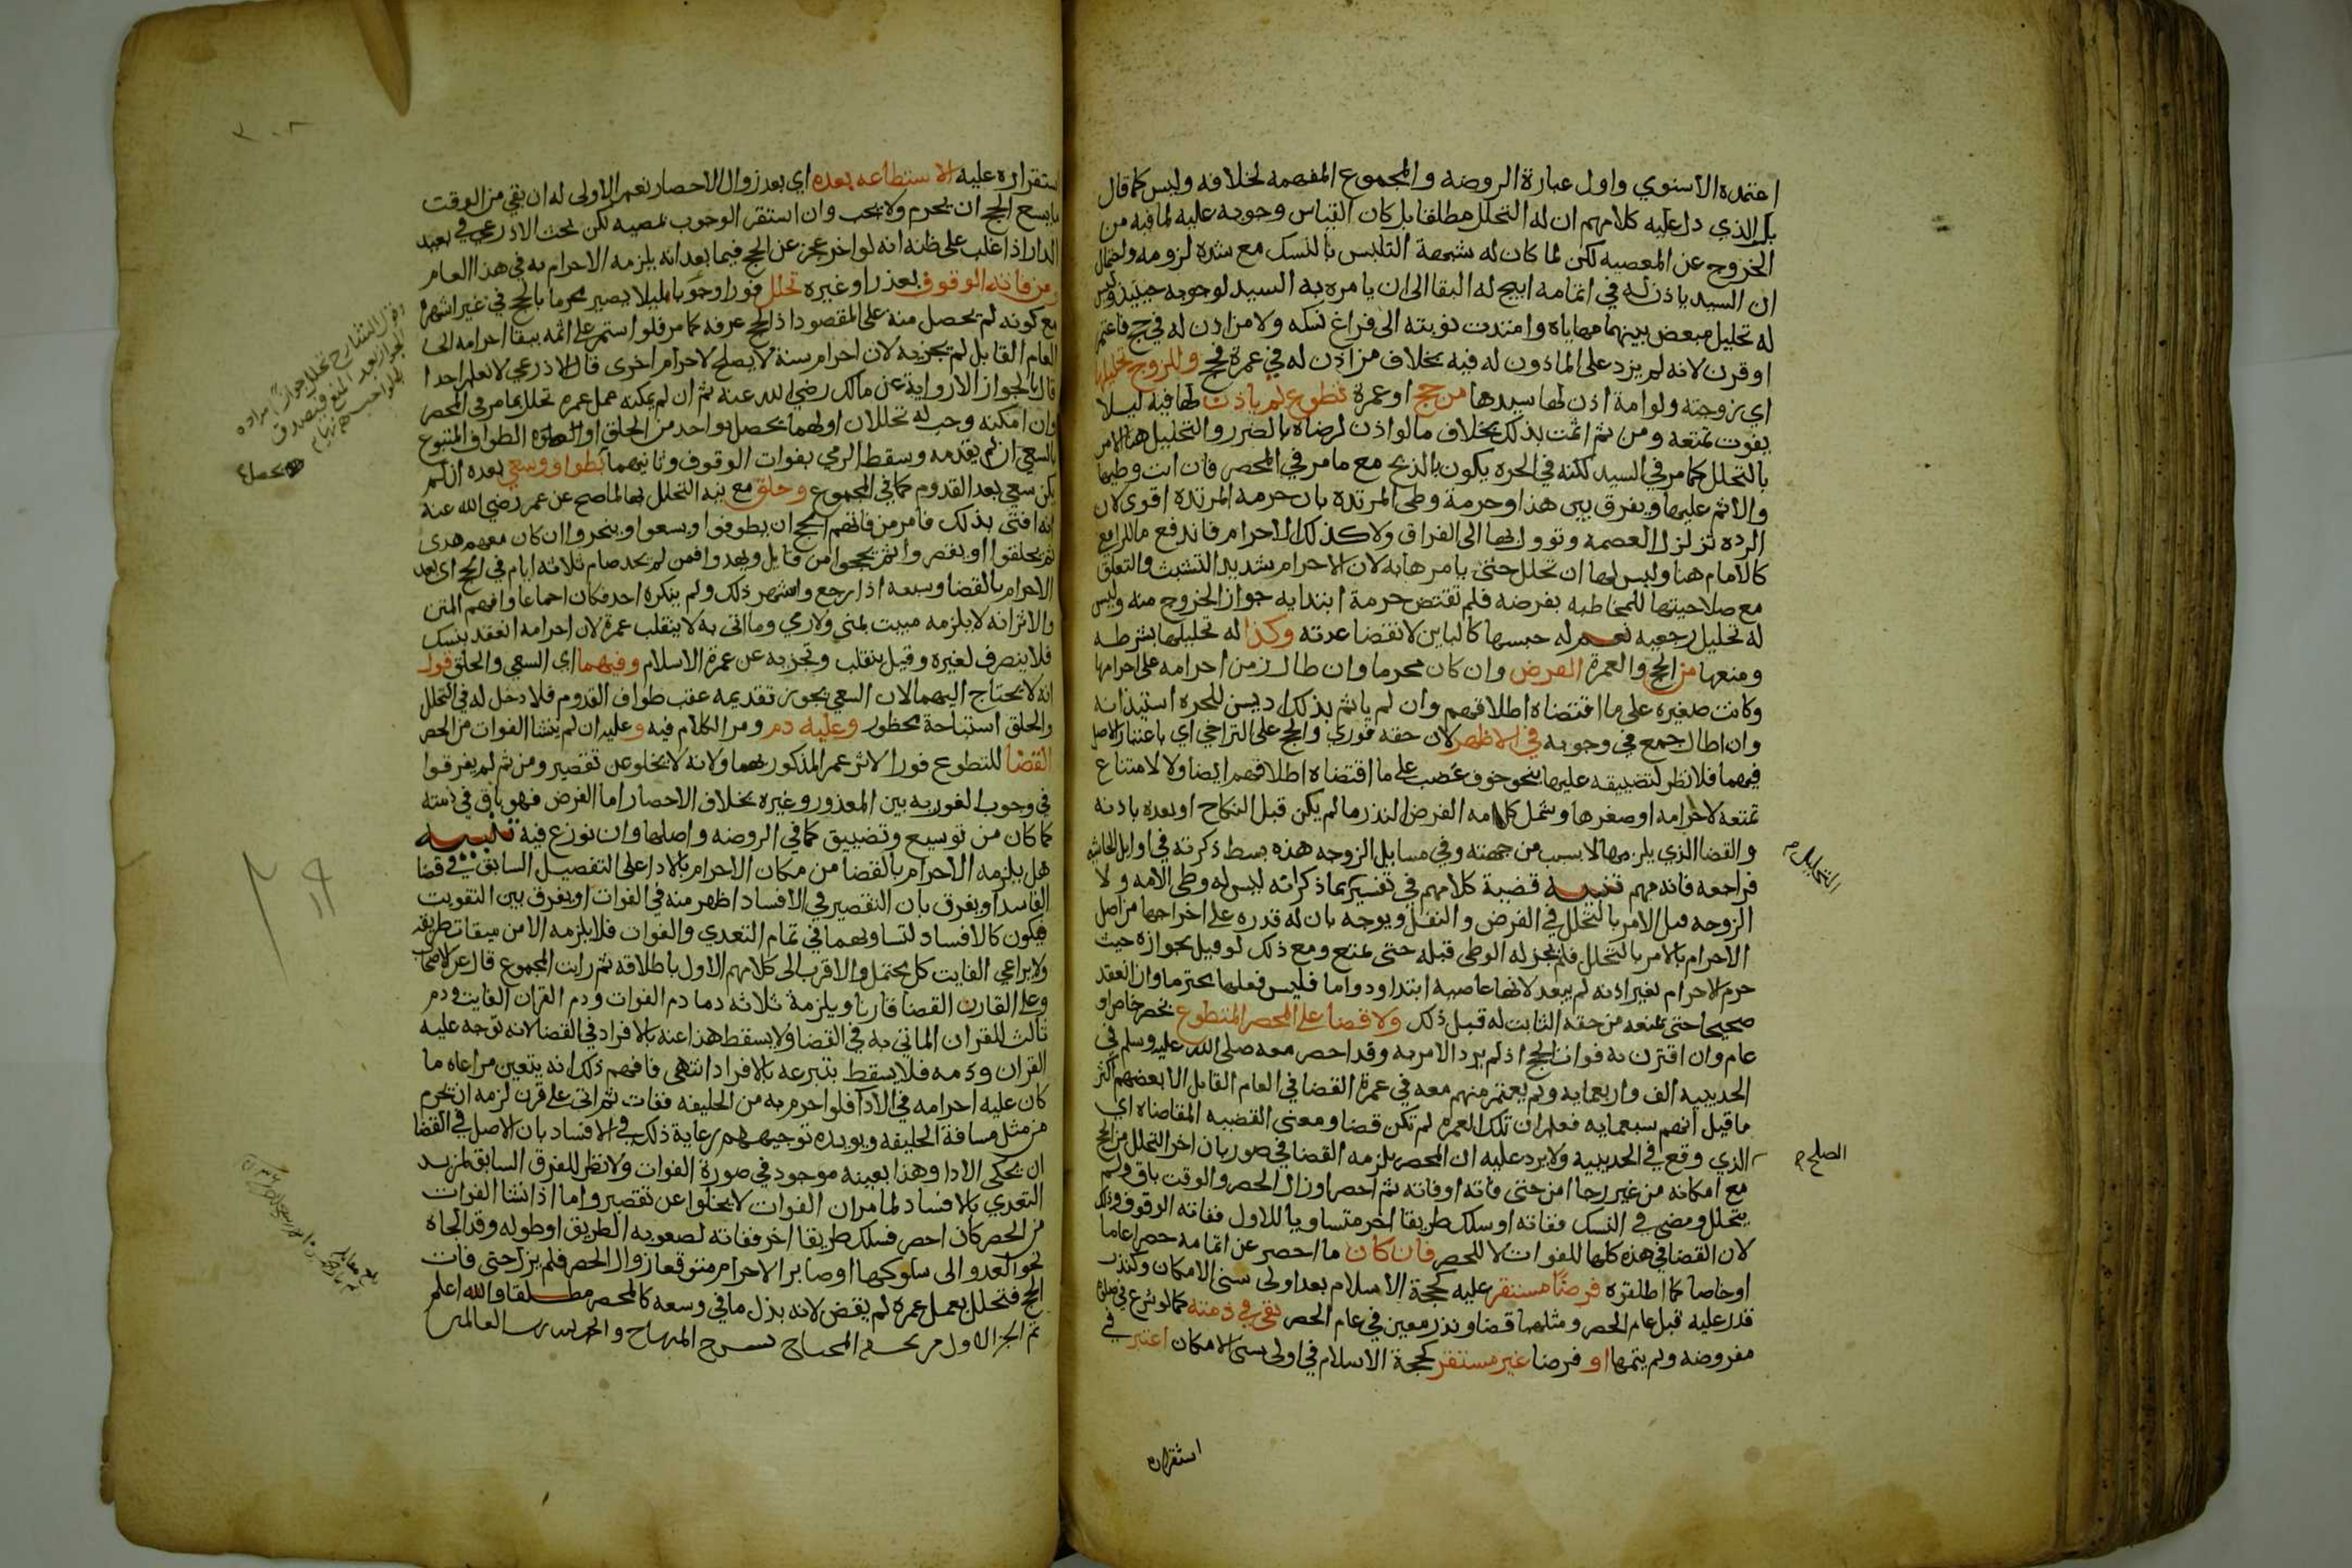 اعتمده الاسنوي واول عبارة الروضه والمجموع المفهمه لخلافه وليس كما قال
بل الذي دل عليه كلامهم ان له التحلل مطلقا بل كان القياس وجوبه عليه لما فيه من
الخروج عن المعصيه لكن لما كان له شبهة التلبس بالنسك مع شدة لزومه واحتمال
ان السيد ياذن له في اتمامه ابيح له البقا الى ان يامره به السيد لوجوبه حينيذ وليس
له تحليل مبعض بينهما مهاياة وامتدت نوبته الى فراغ نسكه ولا من اذن له في حج فاعتمر
او قرن لانه لم يزد على الماذون له فيه بخلاف من اذن له في عمرة فحج وللزوج تحليلها
اي زوجته ولو امة اذن لها سيدها من حج او عمرة تطوع لم ياذن لها فيه ليلا
يفوت تمتعه ومن ثم اثمت بذلك بخلاف ما لو اذن لرضاه بالضرر والتحليل هنا الامر
بالتحلل كما مر في السيد لكنه في الحره يكون بالذبح مع ما مر في المحصر فان ابت وطيها
والاثم عليها ويفرق بين هذا وحرمة وطى المرتده بان حرمه المرتده اقوى لان
الرده تزلزل العصمه وتوول بها الى الفراق ولا كذلك الاحرام فاندفع ما للرافعي
كالامام هنا وليس لها ان تحلل حتى يامرها به لان الاحرام شديد التشبث والتعلق
مع صلاحيتها للمخاطبه بفرضه فلم تقتض حرمة ابتدايه جواز الخروج منه وليس
له تحليل رجعيه نعم له حبسها كالباين لانقضا عدته وكذا له تحليلها بشرطه
ومنعها من الحج والعمرة الفرض وان كان محرما وان طال زمن احرامه على احرامها
وكانت صغيره على ما اقتضاه اطلاقهم وان لم ياثم بذلك اذ يسن للحره استيذانه
وان اطال جمع في وجوبه في الاظهر لان حقه فوري والحج على التراخي اي باعتبار الاصل
فيهما فلا نظر لتضييقه عليها بنحو خوف عضب على ما اقتضاه اطلاقهم ايضا ولا لامتناع
تمتعه لاحرامه او صغرها وشمل كلامه الفرض النذر ما لم يكن قبل النكاح او بعده باذنه
والقضا الذي يلزمها لا بسبب من جهته وفي مسايل الزوجه هذه بسط ذكرته في اوايل الحاشيه
فراجعه فانه مهم تنبيه قضية كلامهم في تفسيرهم بما ذكر انه ليس له وطى الامه ولا
الزوجه قبل الامر بالتحلل في الفرض والنفل ويوجه بان له قدره على اخراجها من اصل
الاحرام بالامر بالتحلل فلم يجز له الوطى قبله حتى يمتع ومع ذلك لو قيل بجوازه حيث
حرم الاحرام بغير اذنه لم يبعد لانها عاصيه ابتدا ودواما فليس فعلها محترما وان انعقد
صحيحا حتى تمنعه من حقه الثابت له قبل ذلك ولا قضا على المحصر المتطوع بحصر خاص او
عام وان اقترن به فوات الحج اذ لم يرد الامر به وقد احصر معه صلى الله عليه وسلم في
الحديبيه الف واربعمايه ولم يعتمر منهم معه في عمرة القضا في العام القابل الا بعضهم اكثر
ما قيل انهم سبعمايه فعلم ان تلك العمره لم تكن قضا ومعنى القضيه المقاضاه اي
الذي وقع في الحديبيه ولا يرد عليه ان المحصر يلزمه القضا في صور بان اخر التحلل من الحج
مع امكانه من غير رجا امن حتى فاته او فاته ثم احصر او زال الحصر والوقت باق ولم
يتحلل ومضى في النسك ففاته او سلك طريقا اخر متساويا للاول ففاته الوقوف وذلك
لان القضا في هذه كلها للفوات لا للحصر فان كان ما احصر عن اتمامه حصرا عاما
او خاصا كما اطلقوه فرضا مستقر عليه كحجة الاسلام بعد اولى سني الامكان وكنذر
قدر عليه قبل عام الحصر ومثلهما قضا ونذر معين في عام الحصر بقى في ذمته كما لو شرع في صلاة
مفروضه ولم يتمها او فرضا غير مستقر كحجة الاسلام في اولى سني الامكان اعتبر في
التحليل م
الصلح م
استقراره
٣٠٨
ستقراره عليه الاستطاعه بعده اي بعد زوال الاحصار نعم الاولى له ان بقي من الوقت
ما يسع الحج ان يحرم ولا يجب وان استقر الوجوب بمضيه لكن بحث الاذرعي في بعيد
الدار اذا غلب على ظنه انه لو اخر عجز عن الحج فيما بعد انه يلزمه الاحرام به في هذا العام
ومن فاته الوقوف بعذر او غيره تحلل فورا وجوبا ليلا يصير محرما بالحج في غير اشهره
مع كونه لم يحصل منه على المقصود اذ الحج عرفه كما مر فلو استمر على اثمه ببقا احرامه الى
العام القابل لم يجزيه لان احرام سنة لا يصلح لاحرام اخرى قال الاذرعي لا نعلم احدا
قال بالجواز الا رواية عن مالك رضي الله عنه ثم ان لم يمكنه عمل عمره تحلل بما مر في المحصر
وان امكنه وجب له تحللان اولهما يحصل بواحد من الحلق او الطواف المتبوع
بالسعي ان لم يقدمه وسقط الرمي بفوات الوقوف وثانيهما بطواف وسعي بعده ان لم
يكن سعى بعد القدوم كما في المجموع وحلق مع نية التحلل بها لما صح عن عمر رضي الله عنه
انه افتى بذلك فامر من فاتهم الحج ان يطوفوا ويسعوا وينحروا ان كان معهم هدى
ثم يحلقوا او يقصروا ثم يحجوا من قابل ويهدوا فمن لم يجد صام ثلاثه ايام في الحج اي بعد
الاحرام بالقضا وسبعه اذا رجع واشتهر ذلك ولم ينكره احد فكان اجماعا وافهم المتن
والاثر انه لا يلزمه مبيت بمنى ولا رمي وما اتى به لا ينقلب عمرة لان احرامه انعقد بنسك
فلا ينصرف لغيره وقيل ينقلب وتجزيه عن عمرة الاسلام وفيهما اي السعي والحلق قول
انه لا يحتاج اليهما لان السعي يجوز تقديمه عقب طواف القدوم فلا دخل له في التحلل
والحلق استباحة محظور وعليه دم ومر الكلام فيه وعليه ان لم ينشا الفوات من الحصر
القضا للتطوع فورا لاثر عمر المذكور بهما ولانه لا يخلو عن تقصير ومن ثم لم يفرقوا
في وجوب الفوريه بين المعذور وغيره بخلاف الاحصار اما الفرض فهو باق في ذمته
كما كان من توسيع وتضييق كما في الروضه واصلها وان نوزع فيه تنبيه
هل يلزمه الاحرام بالقضا من مكان الاحرام بالادا على التفصيل السابق في قضا
الفاسد او يفرق بان التقصير في الافساد اظهر منه في الفوات او يفرق بين التفويت
فيكون كالافساد لتساويهما في تمام التعدي والفوات فلا يلزمه الا من ميقات طريقه
ولا يراعي الفايت كل محتمل والاقرب الى كلامهم الاول باطلاقه ثم رايت المجموع قال عن الاصحاب
وعلى القارن القضا قارنا ويلزمة ثلاثه دما دم الفوات ودم القران الفايت ودم
ثالث للقران الماتي به في القضا ولا يسقط هذا عنه بالافراد في القضا لانه توجه عليه
القران ودمه فلا يسقط بتبرعه بالافراد انتهى فافهم ذلك انه يتعين مراعاة ما
كان عليه احرامه في الادا فلو احرم به من الحليفه ففات ثم اتى على قرن لزمه ان يحرم
من مثل مسافة الحليفه ويويده توجيههم رعاية ذلك في الافساد بان الاصل في القضا
ان يحكى الادا وهذا بعينه موجود في صورة الفوات ولا نظر للفرق السابق لمزيد
التعدي بالافساد لما مر ان الفوات لا يخلوا عن تقصير واما اذا نشا الفوات
من الحصر كان احصر فسلك طريقا اخر ففاته لصعوبه الطريق او طوله وقد الجاه
نحو العدو الى سلوكها او صابر الاحرام متوقعا زوال الحصر فلم يزل حتى فات
الحج فتحلل بعمل عمره لم يقض لانه بذل ما في وسعه كالمحصر مطلقا والله اعلم
تم الجز الاول من تحفة المحتاج بسرح المنهاج والحمد لله رب العالمين